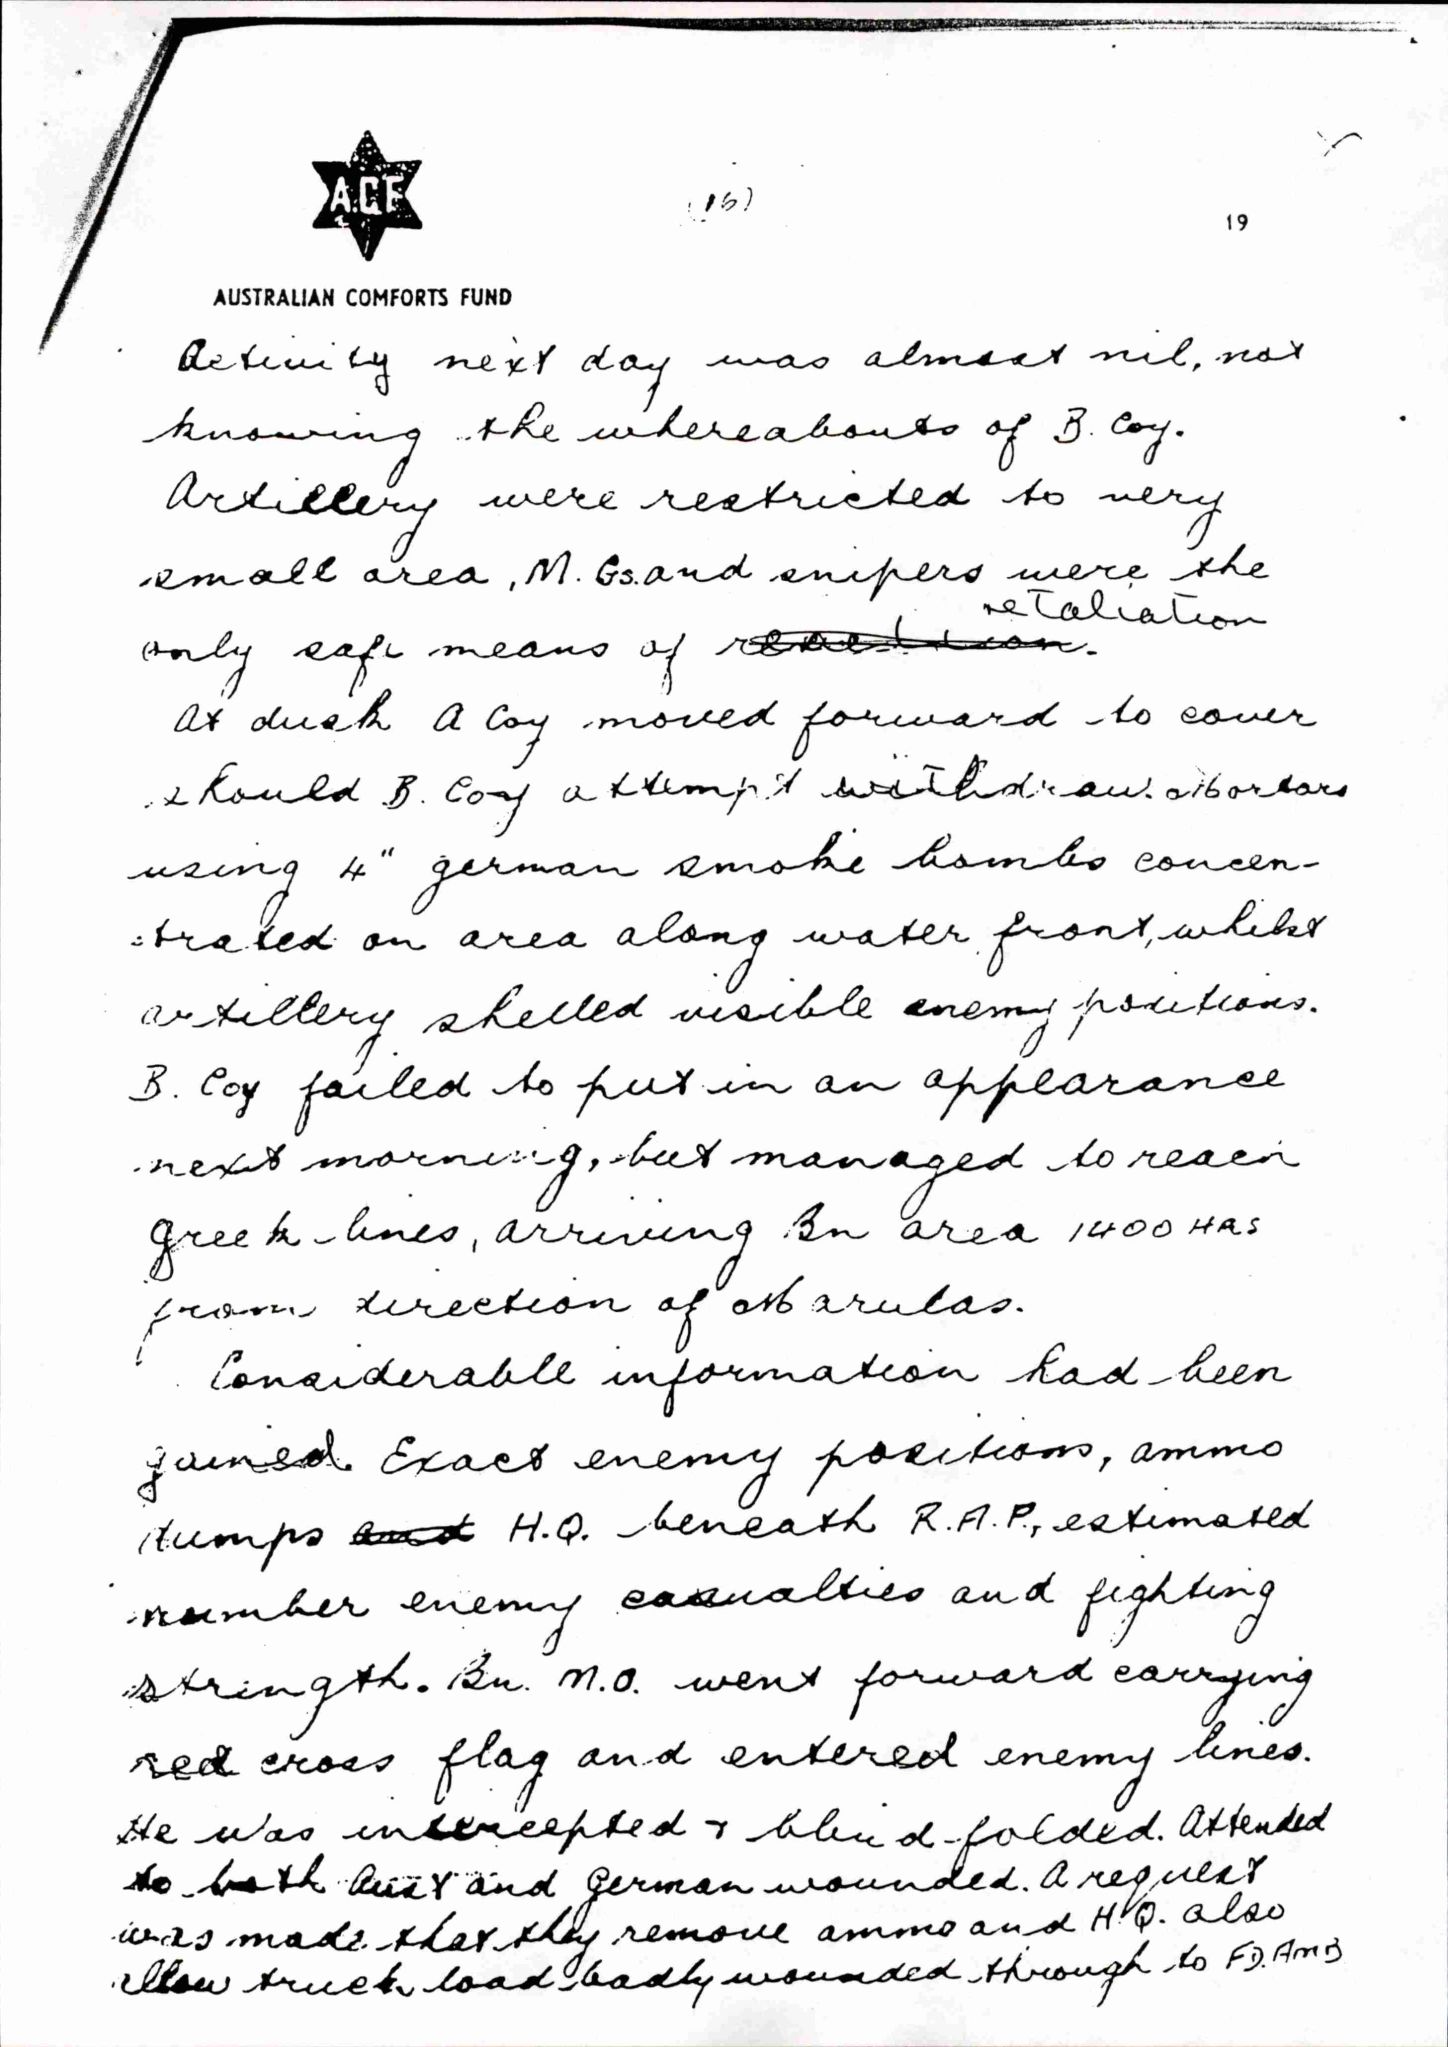 A.C.F
(16)
19
AUSTRALIAN COMFORTS FUND
Activity next day was almost nil, not
knowing the whereabouts of B. Coy.
Artillery were restricted to very
small area, M. Gs. and snipers were the
retaliation
only safe means of reaction.
At dusk A Coy moved forward to cover
should B. Coy attempt withdraw. Mortars
using 4" german smoke bombs concen-
trated on area along water front, whilst
artillery shelled visible enemy positions.
B. Coy failed to put in an appearance
next morning, but managed to reach
Greek lines, arriving Bn area 1400 HRS
from direction of Marulas.
Considerable information had been
gained. Exact enemy positions, ammo
dumps and H.Q. beneath R.A.P., estimated
number enemy casualties and fighting
strength. Bn. M.O. went forward carrying
red cross flag and entered enemy lines.
He was intercepted & blind-folded. Attended
to both Aust and German wounded. A request
was made that they remove ammo and H.Q. also
allow truck load badly wounded through to FD. AMB